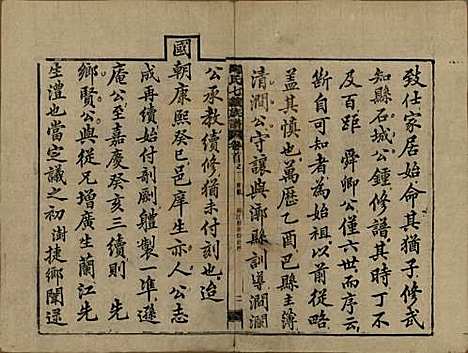 致仕家居始命其猶子修武
知縣石城公鍾修譜其時丁不
及百距 舜卿公僅六世而亦
斷自可知者為始祖以前從略
蓋其慎也萬歷乙酉巴縣主簿
清澗公守讓與漷縣訓導澗瀾
氏七續族譜 卷首之
公承教續修猶未付刻也迨
國朝康熙癸巳邑庠生亦人公志
成再續始付剞劂體製一準遯
庵公至嘉慶癸亥三續則 先
鄉賢公與從兄增廣生蘭江先
生澧也當定議之初澍捷鄉闈還